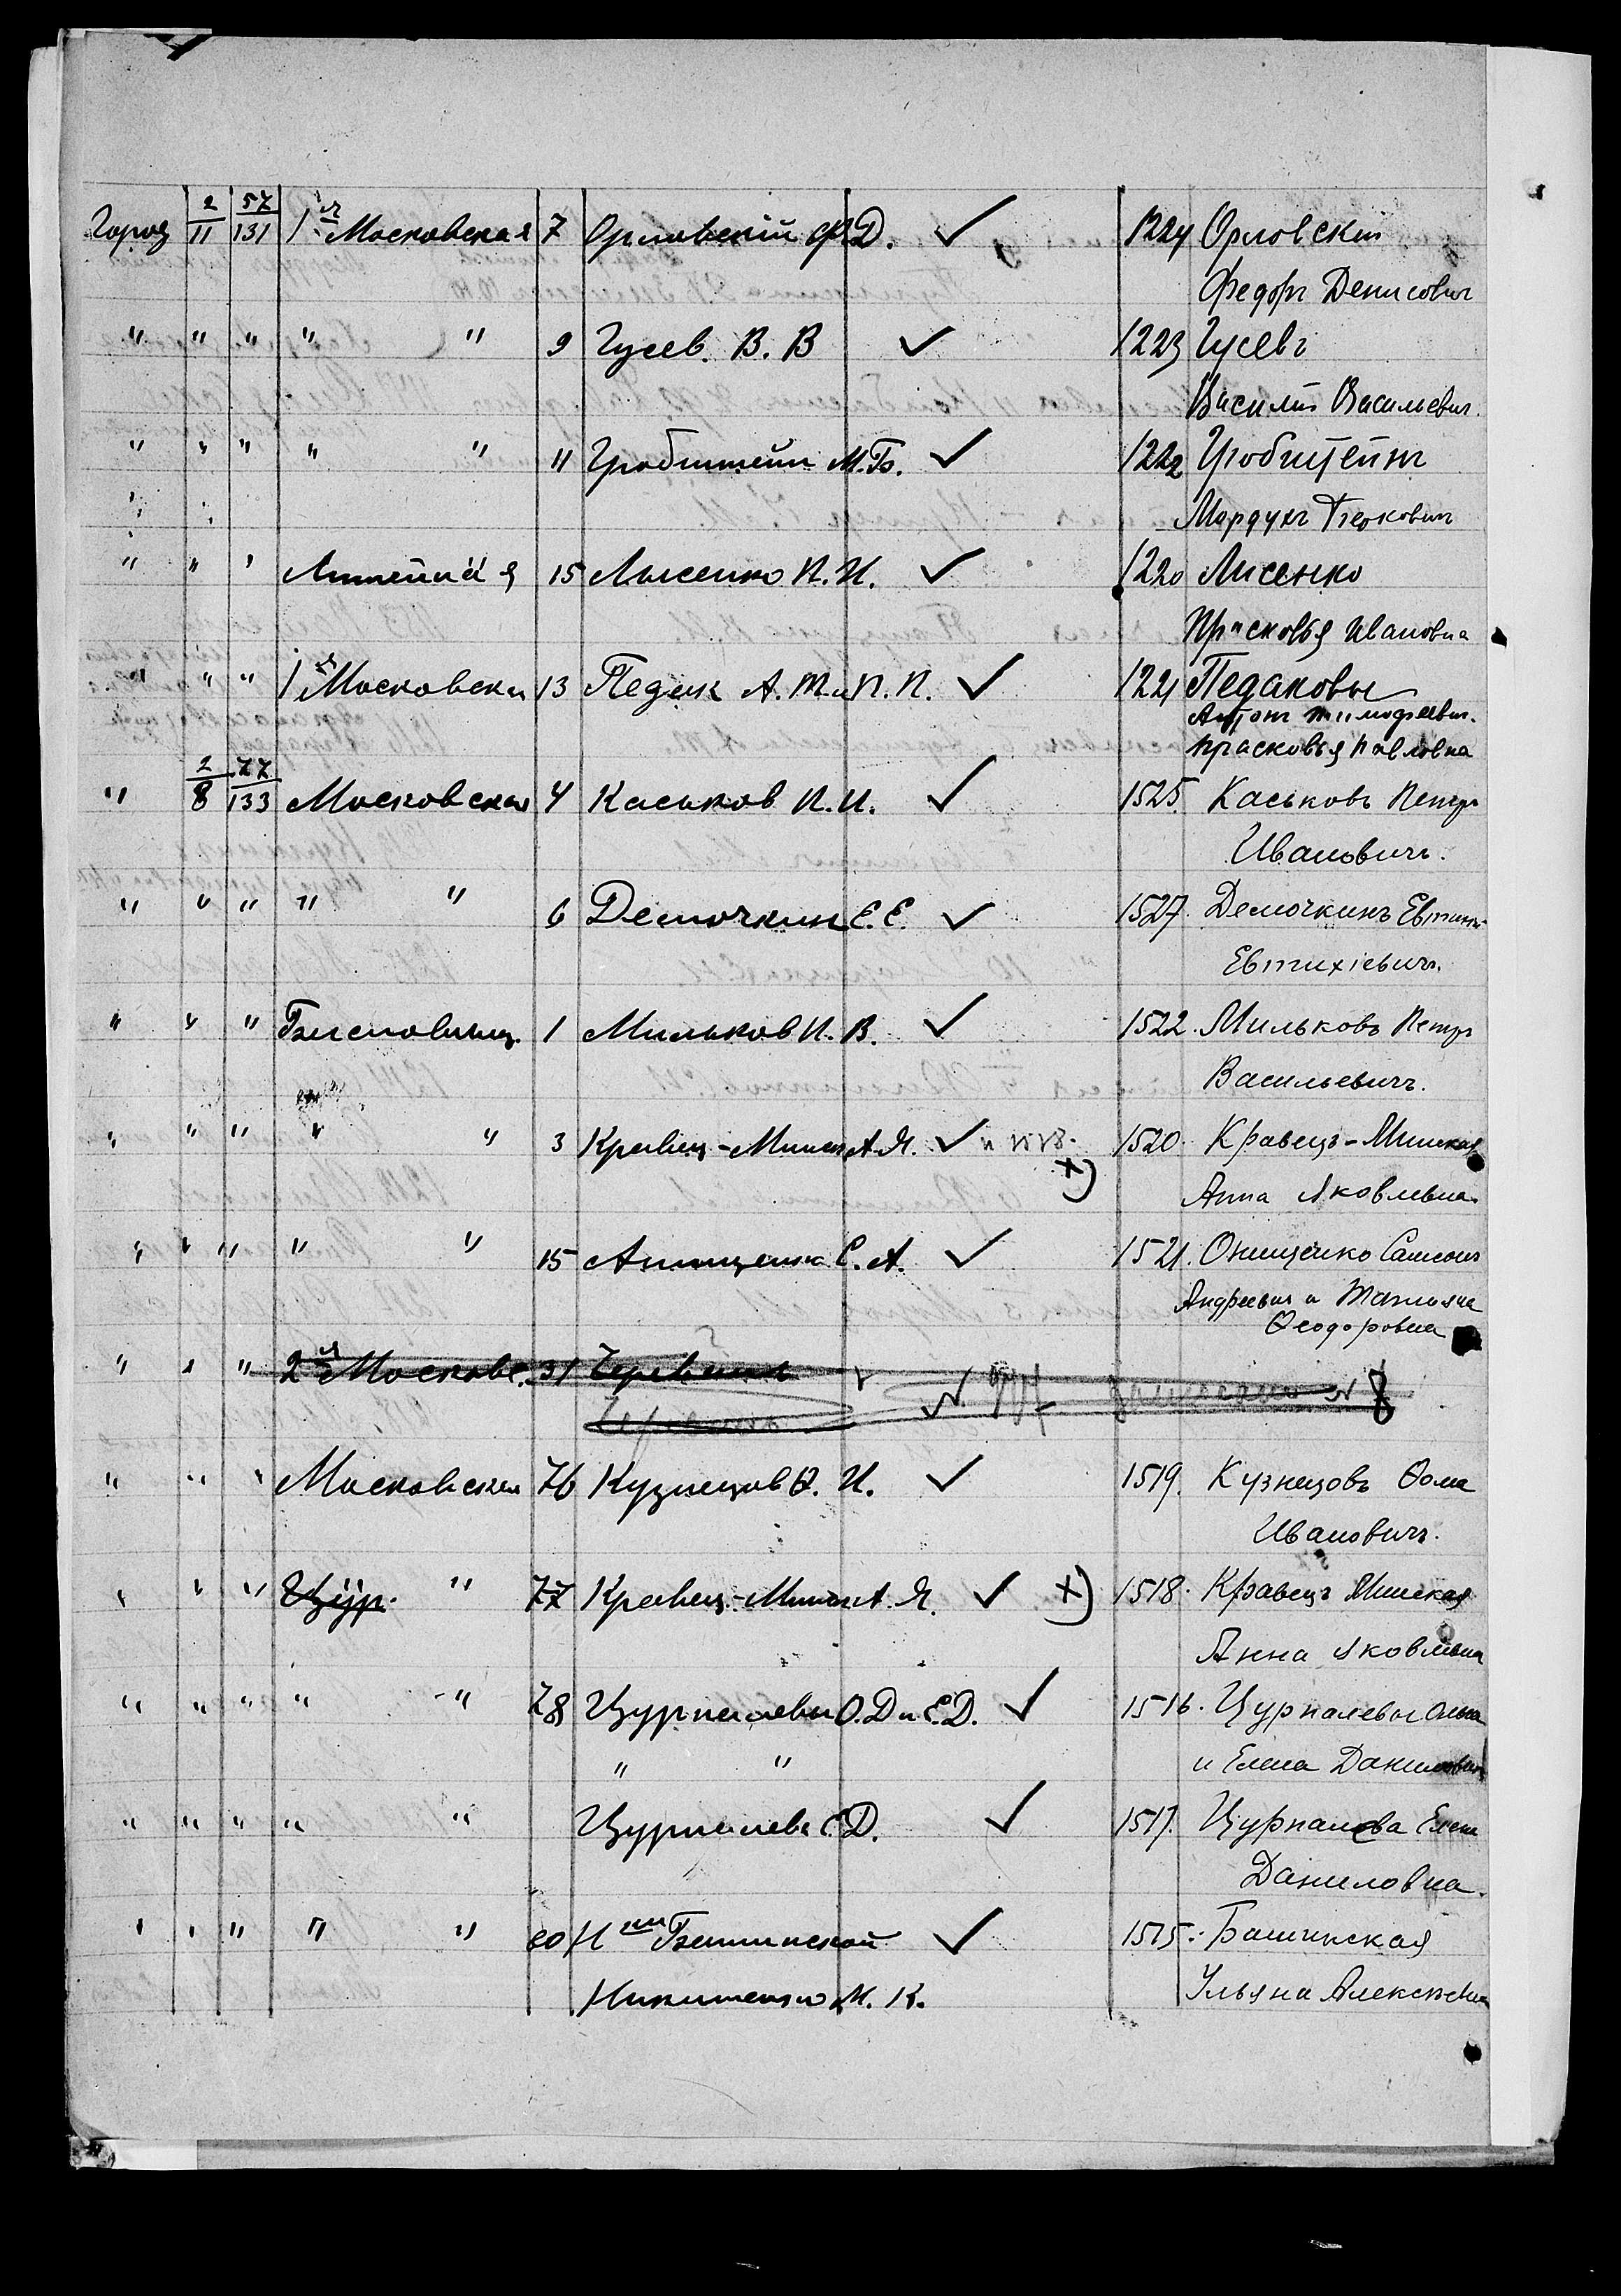 Город 2/11 57/131 1я Московская 7 Орловский Ф.Д. ✓ 1224 Орловскій
Федоръ Денисовичъ
" " " " " 9 Гусев. В. В ✓ 1223 Гусевъ
Василій Васильевич.
" " " " " 11 Гробштейн М.Б. ✓ 1222 Гробштейнъ
Мордухъ Беркович
" " " Литейная 15 Лысенко П. И. ✓ 1220 Лисенко
Прасковья Ивановна
" " " 1я Московская 13 Педак А. Т. и П. П. ✓ 1221 Педаковы
Антонъ Тимофеевич.
Прасковья Павловна
" 2/8 77/133 Московская 4 Каськов П. И. ✓ 1525 Каськовъ Петръ
Ивановичъ.
" " " " " 6 Демочкин Е. Е. ✓ 1527. Демочкинъ
Евтихіевичъ.
" " " 1 Мильков П. В. ✓ 1522. Мильковъ Петръ
Васильевичъ.
" " " " " 3 Кравец-Минск А.Я. ✓ и 1518. х) 1520. Кравецъ-Минская
Анна Яковлевна.
" " " " " 15 Анищенко С. А. ✓ 1521. Онищенко Самсонъ
Андреевич и Татьяна
Ѳеодоровна
" " " 2я Московс. 31
№ 8
" " " Московская 76 Кузнецов Ѳ. И. ✓ 1519. Кузнецовъ Ѳома
Ивановичъ.
" " " Цур. " 77 Кравец-Минск А. Я. ✓ х) 1518. Кравецъ Минская
Анна Яковлевна
" " " " " 78 Цурпалевы О. Д и Е.Д. ✓ 1516. Цурпалевы Ольга
" " и Елена Даниловны
" " " " " Цурпалева Е.Д. ✓ 1517. Цурпалева Елена
Даниловна.
" " " " " 80 Н-ки Башинской ✓ 1515. Башинская
Никитенко М. К. Ульяна Алексѣевна